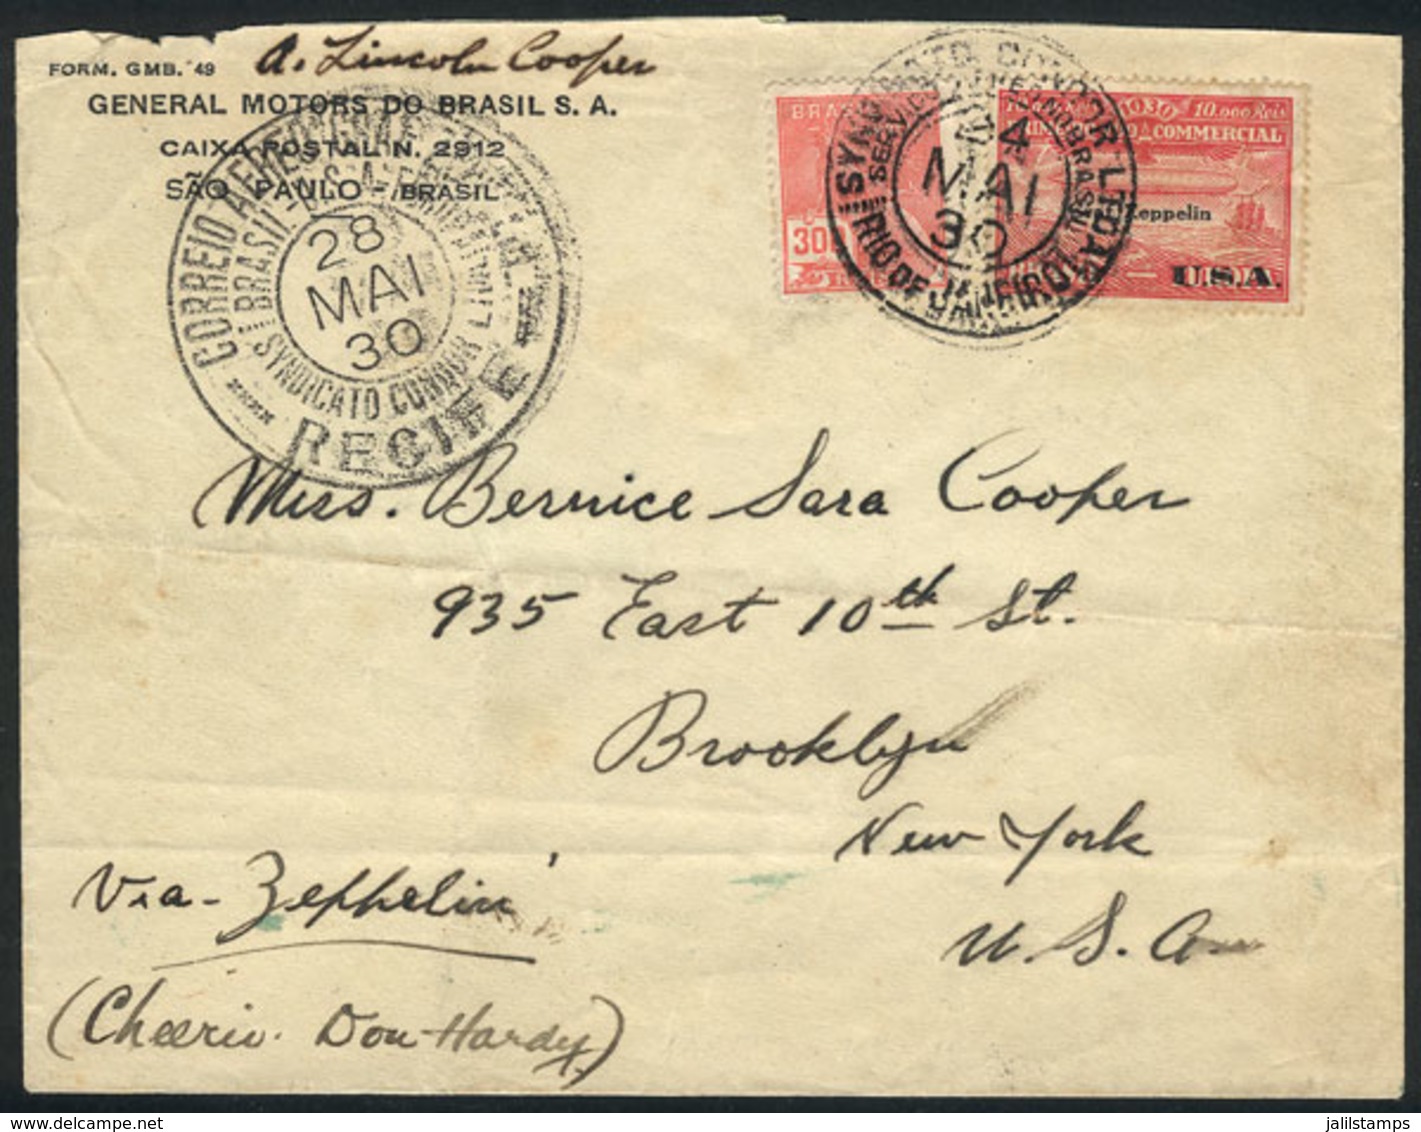 A. Lincoln Cooper
FORM. GMB. 49
GENERAL MOTORS DO BRASIL S. A.
CAIXA POSTAL N. 2912
SÃO PAULO - BRASIL
CORREIO
BRASIL - U.S.A.
28
MAI
30
SYNDICATO CONDOR LTDA
RECIFE
BRAS
300
SYNDICATO CONDOR LTDA
SERVIÇO AEREO NO BRASIL
24
MAI
30
RIO DE JANEIRO
1930 10.000 Reis
COMMERCIAL
Zeppelin
U.S.A.
Miss. Bernice Sara Cooper
935 East 10th St.
Brooklyn
New York
U. S. A.
Via- Zeppelin
(Cheerio. Don Hardy)
jalilstamps